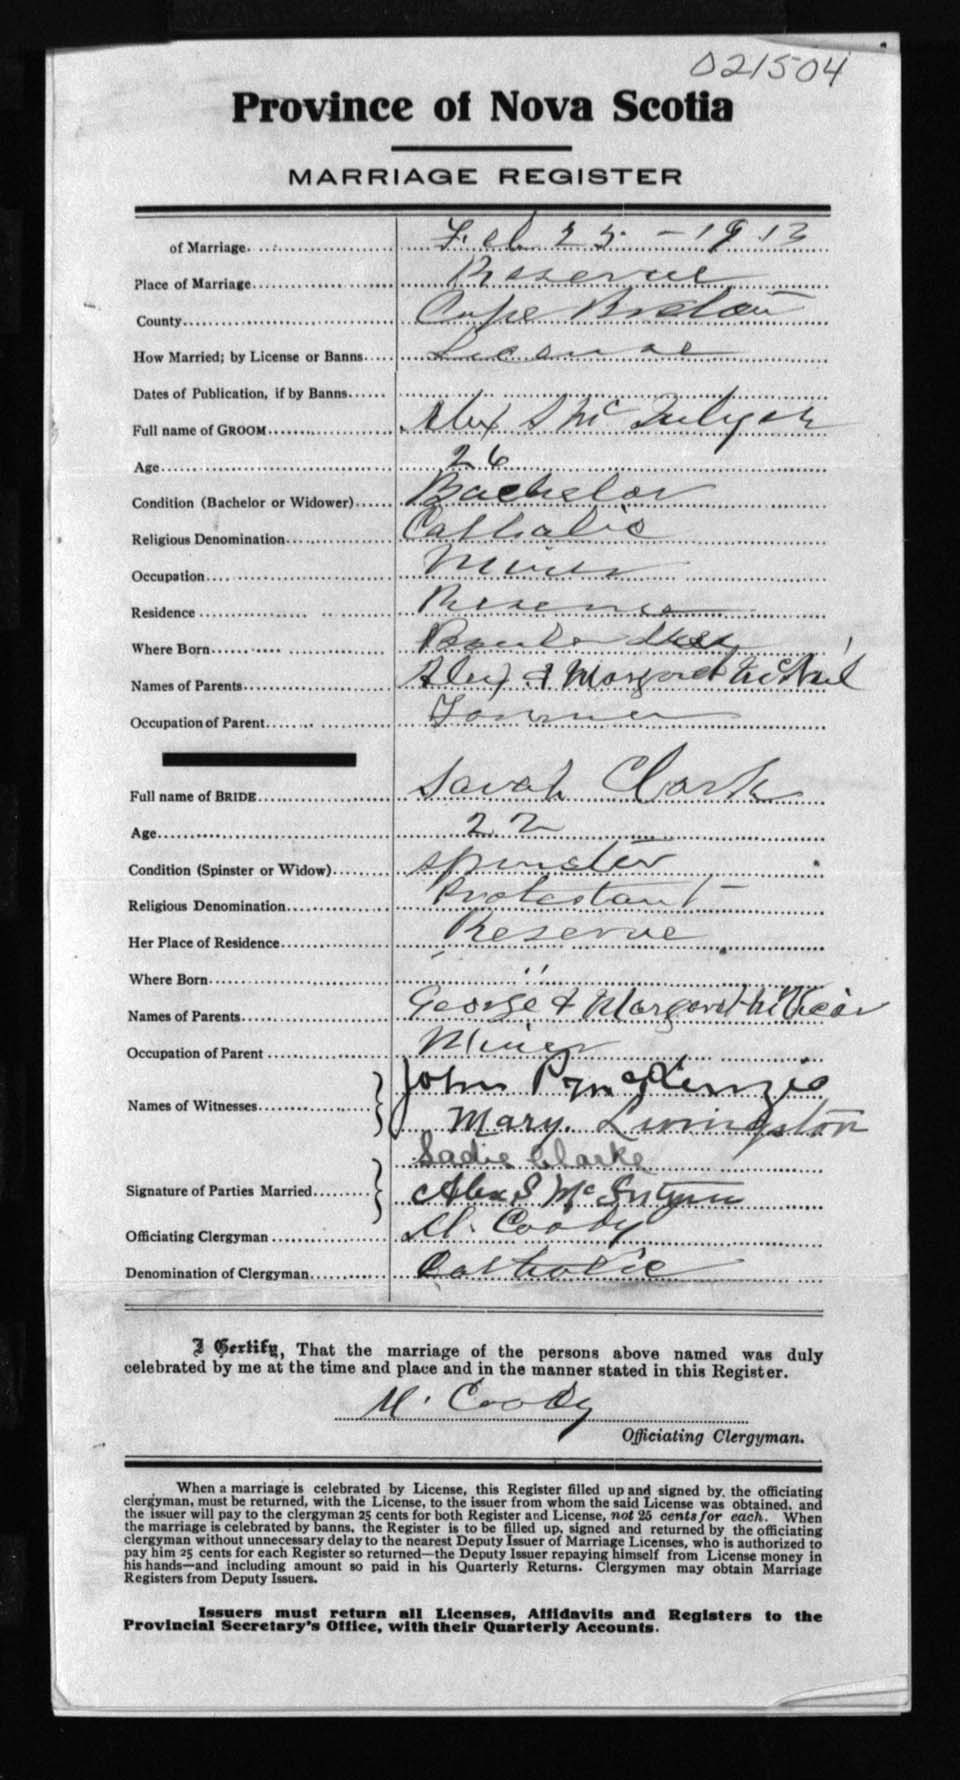 021504
Province of Nova Scotia
MARRIAGE REGISTER
of Marriage Feb 25 - 1913
Place of Marriage Reserve
County Cape Breton
How Married; by License or Banns License
Dates of Publication, if by Banns
Full name of GROOM Alex S Mc
Age 26
Condition (Bachelor or Widower) Bachelor
Religious Denomination Catholic
Occupation Miner
Residence Reserve
Where Born
Names of Parents Alex & Margaret McNeil
Occupation of Parent Farmer
Full name of BRIDE Sarah Clark
Age 22
Condition (Spinster or Widow) spinster
Religious Denomination Protestant
Her Place of Residence Reserve
Where Born "
Names of Parents George & Margaret McVicar
Occupation of Parent Miner
Names of Witnesses John P McKenzie
Mary. Livingston
Sadie Clarke
Signature of Parties Married Alex S Mc
Officiating Clergyman M. Coody
Denomination of Clergyman Catholic
I Certify, That the marriage of the persons above named was duly
celebrated by me at the time and place and in the manner stated in this Register.
M. Coody
Officiating Clergyman.
When a marriage is celebrated by License, this Register filled up and signed by, the officiating
clergyman, must be returned, with the License, to the issuer from whom the said License was obtained, and
the issuer will pay to the clergyman 25 cents for both Register and License, not 25 cents for each. When
the marriage is celebrated by banns, the Register is to be filled up, signed and returned by the officiating
clergyman without unnecessary delay to the nearest Deputy Issuer of Marriage Licenses, who is authorized to
pay him 25 cents for each Register so returned—the Deputy Issuer repaying himself from License money in
his hands—and including amount so paid in his Quarterly Returns. Clergymen may obtain Marriage
Registers from Deputy Issuers.
Issuers must return all Licenses, Affidavits and Registers to the
Provincial Secretary's Office, with their Quarterly Accounts.